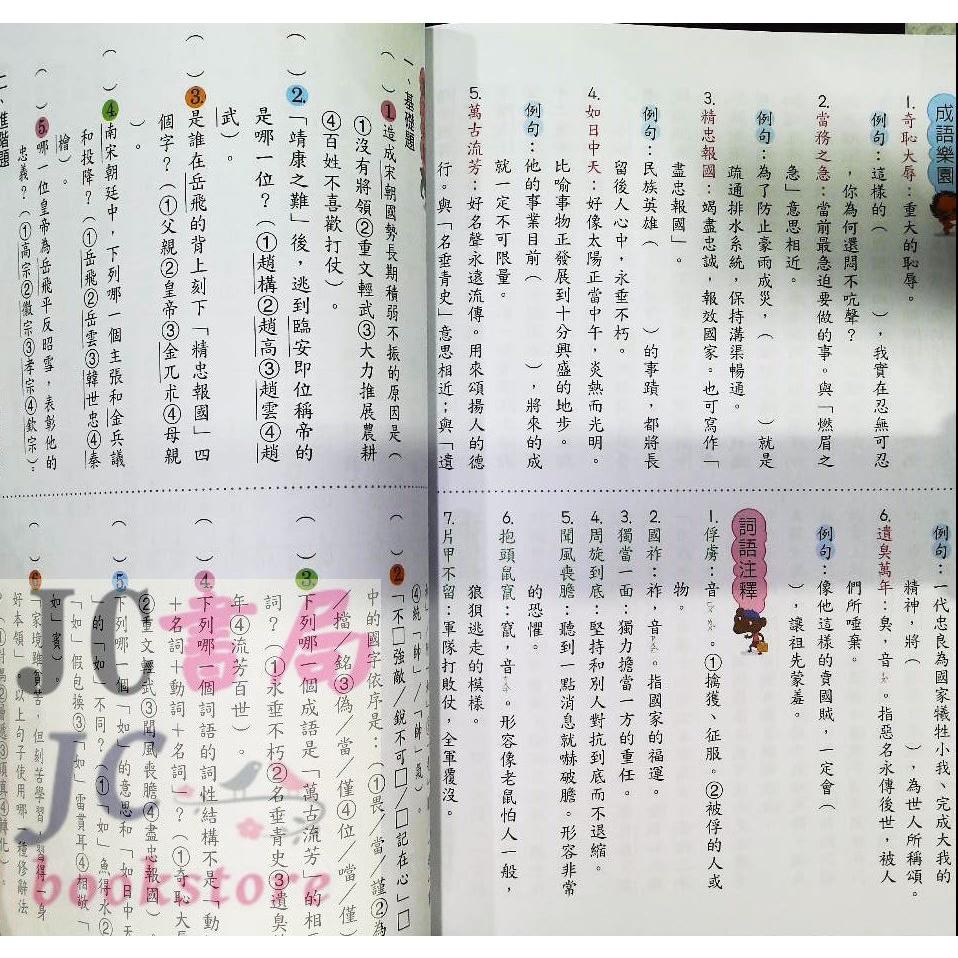 成語樂園
1.奇恥大辱：重大的恥辱。
例句：這樣的（　　　　），我實在忍無可忍
，你為何還悶不吭聲？
2.當務之急：當前最急迫要做的事。與「燃眉之
急」意思相近。
例句：為了防止豪雨成災，（　　　　）就是
疏通排水系統，保持溝渠暢通。
3.精忠報國：竭盡忠誠，報效國家。也可寫作「
盡忠報國」。
例句：民族英雄（　　　　）的事蹟，都將長
留後人心中，永垂不朽。
4.如日中天：好像太陽正當中午，炎熱而光明。
比喻事物正發展到十分興盛的地步。
例句：他的事業目前（　　　　），將來的成
就一定不可限量。
5.萬古流芳：好名聲永遠流傳。用來頌揚人的德
行。與「名垂青史」意思相近；與「遺
例句：一代忠良為國家犧牲小我、完成大我的
精神，將（　　　　），為世人所稱頌。
6.遺臭萬年：臭，音。指惡名永傳後世，被人
們所唾棄。
例句：像他這樣的賣國賊，一定會（
），讓祖先蒙羞。
詞語注釋
1.俘虜：音。①擒獲、征服。②被俘的人或
物。
2.國祚：祚，音。指國家的福運。
3.獨當一面：獨力擔當一方的重任。
4.周旋到底：堅持和別人對抗到底而不退縮。
5.聞風喪膽：聽到一點消息就嚇破膽。形容非常
的恐懼。
6.抱頭鼠竄：竄，音。形容像老鼠怕人一般，
狼狽逃走的模樣。
7.片甲不留：軍隊打敗仗，全軍覆沒。
一、基礎題
（　）1造成宋朝國勢長期積弱不振的原因是（
①沒有將領②重文輕武③大力推展農耕
④百姓不喜歡打仗）。
（　）2.「靖康之難」後，逃到臨安即位稱帝的
是哪一位？（①趙構②趙高③趙雲④趙
武）。
（　）3.是誰在岳飛的背上刻下「精忠報國」四
個字？（①父親②皇帝③金兀朮④母親
）。
（　）4南宋朝廷中　下列哪一個主張和金兵議
和投降？（①岳飛②岳雲③韓世忠④秦
檜）。
（　）5哪一位皇帝為岳飛平反昭雪，表彰他的
忠義？（①高宗②徽宗③孝宗④欽宗）。
二、進階題
④統「帥」／「帥」氣）。
（　）2「不□強敵／銳不可□／□記在心」□
中的國字依序是：（①畏／當／謹②為
／擋／銘③偽／當／僅④位／當／僅）
（　）3.下列哪一個成語是「萬古流芳」的相
詞？（①永垂不朽②名垂青史③遺臭
年④流芳百世）。
（　）4.下列哪一個詞語的詞性結構不是「動
＋名詞＋動詞＋名詞」？（①奇恥大
②重文輕武③聞風喪膽④盡忠報國）
（　）5.下列哪一個「如」的意思和「如日中天
」的「如」不同？（①「如」魚得水②
「如」假包換③「如」雷貫耳④相敬「
如」賓）。
（　）6「家境雖貧苦，但刻苦學習，習得一身
好本領」。以上句子使用哪一種修辭法
JC書局
JC
bookstore